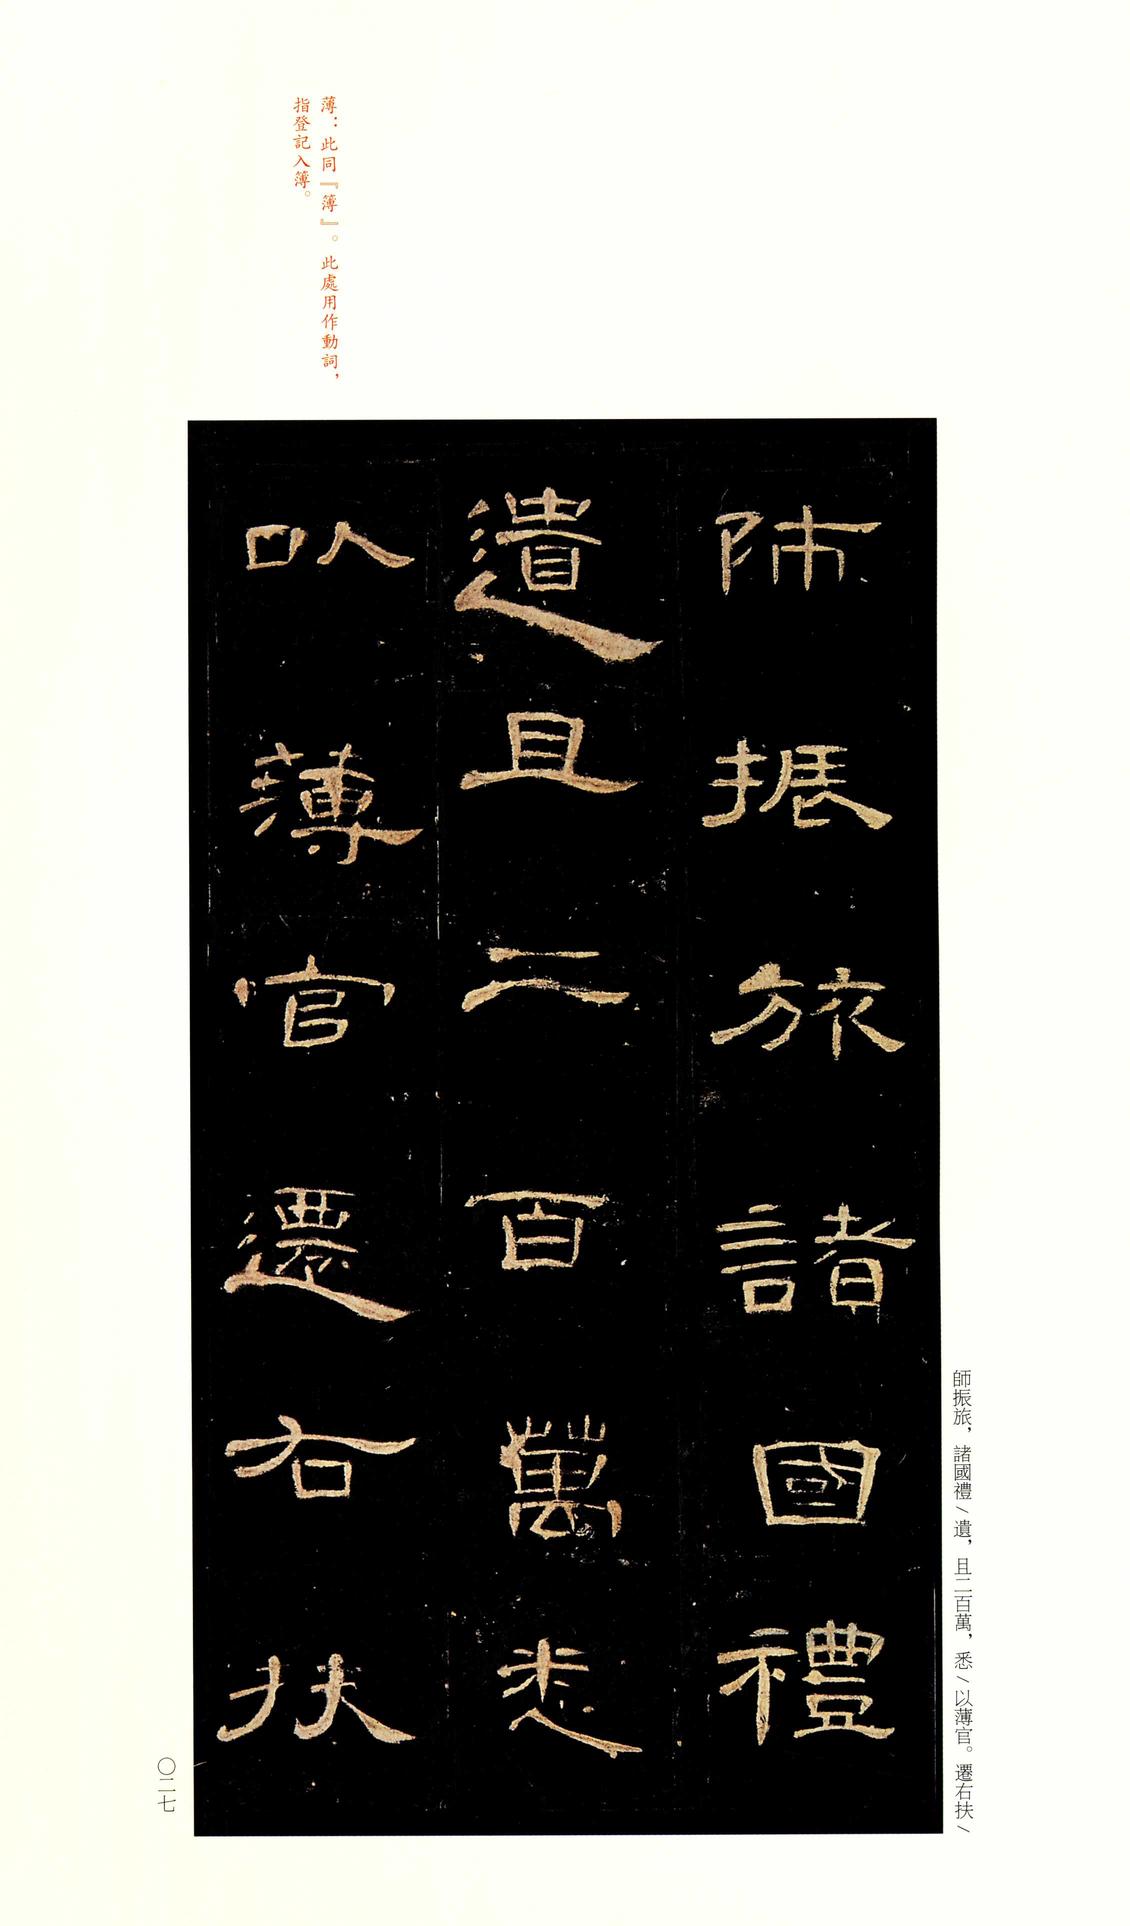 薄：此同『簿』。此處用作動詞，
指登記入簿。
師振旅諸國禮
遺且二百萬悉
以薄官遷右扶
師振旅，諸國禮/遺，且二百萬，悉/以薄官。遷右扶/
〇二七